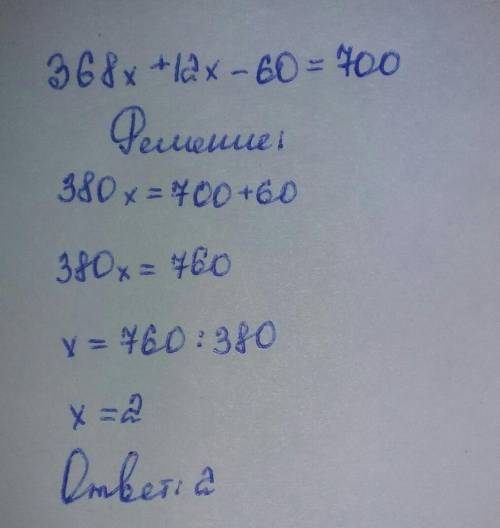 368x + 12x - 60 = 700
Решение:
380x = 700 + 60
380x = 760
x = 760 : 380
x = 2
Ответ: 2